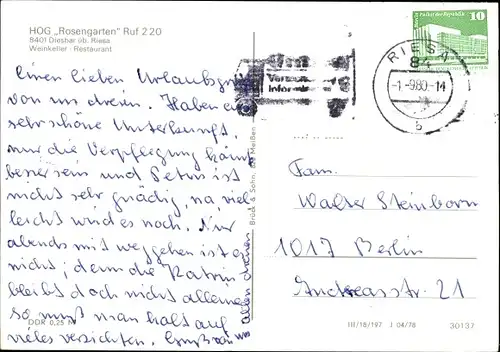 HOG „Rosengarten" Ruf 2 20
8401 Diesbar üb. Riesa
Weinkeller · Restaurant
Einen lieben Urlaubsgruß
von uns dreien. Haben eine
sehr schöne Unterkunft,
nur die Verpflegung könnte
besser sein und Petrus ist
nicht sehr gnädig, na viel-
leicht wird es noch. Nur
abends mit weggehen ist es
nichts, denn die Katrin
bleibt doch nicht alleine
so muß man halt auf
vieles verzichten. Gruß von
allen dreien
DDR 0,25 M
Brück & Sohn, Meißen
10
Berlin Palast der Republik
DDR
RIESA
84
-1.-9.80.-14
b
Fam.
Walter Steinborn
1017 Berlin
Andreasstr. 21
III/18/197 J 04/78
30137